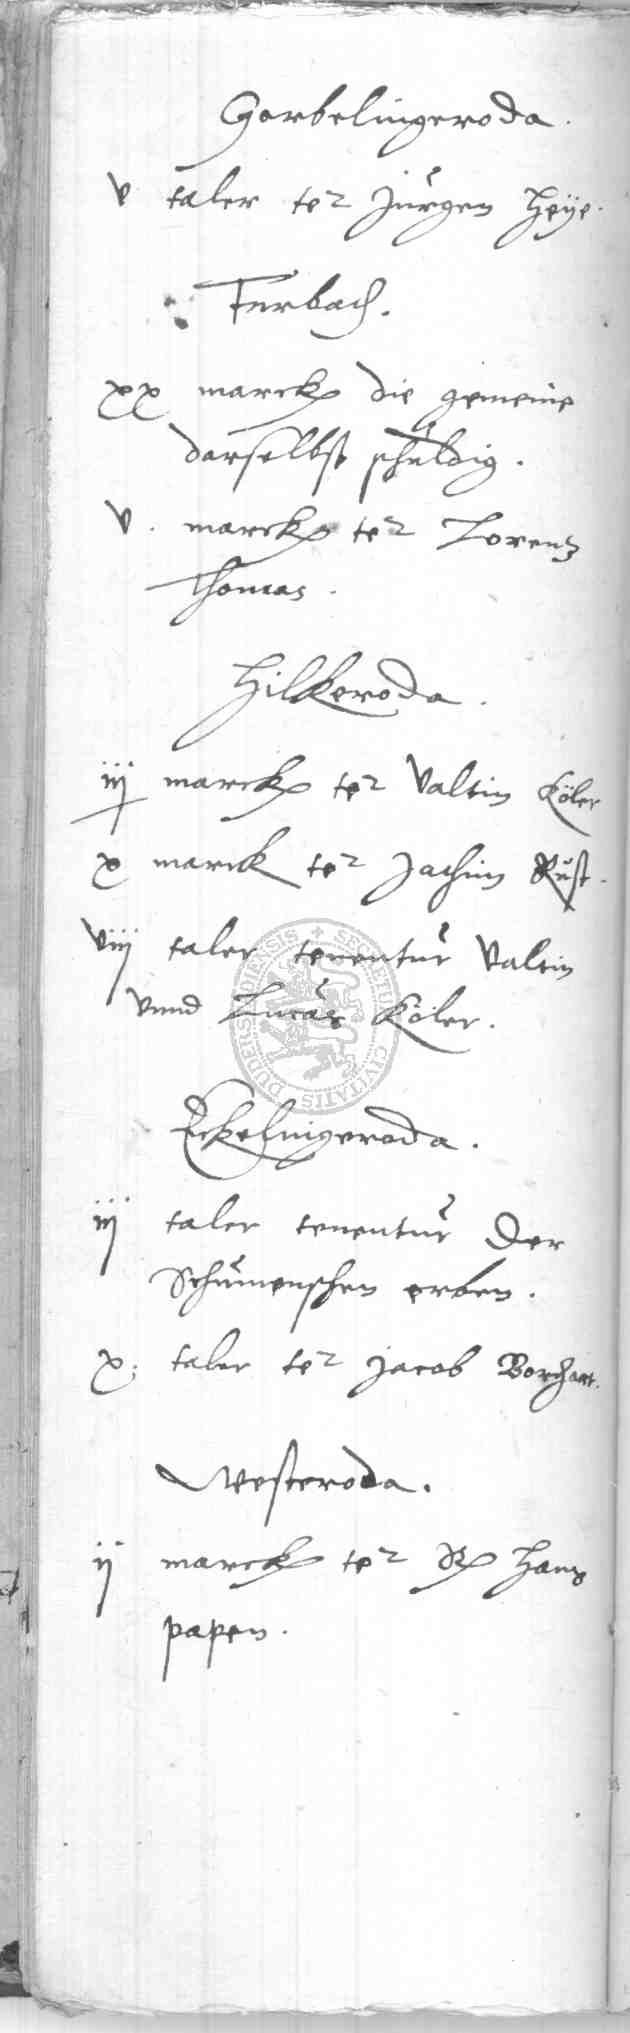 Gerbelingeroda.
v taler tet Jürgen Heÿe.
Furbach.
xx marck die gemeine
darselbst schuldig.
v. marck tet Lorentz
Thomas.
Hilkeroda.
iij marck tet Valtin Köler
x marck tet Jachim Rust.
viij taler tenentur Valtin
vnnd Lucas Köler.
Eckelingeroda.
iij taler tenentur Der
Schümenschen erben.
x. taler tet Jacob Borchart.
Westeroda.
ij marck tet Hans
papen.
SECRETUM CIVITATIS DUDERSTADIENSIS